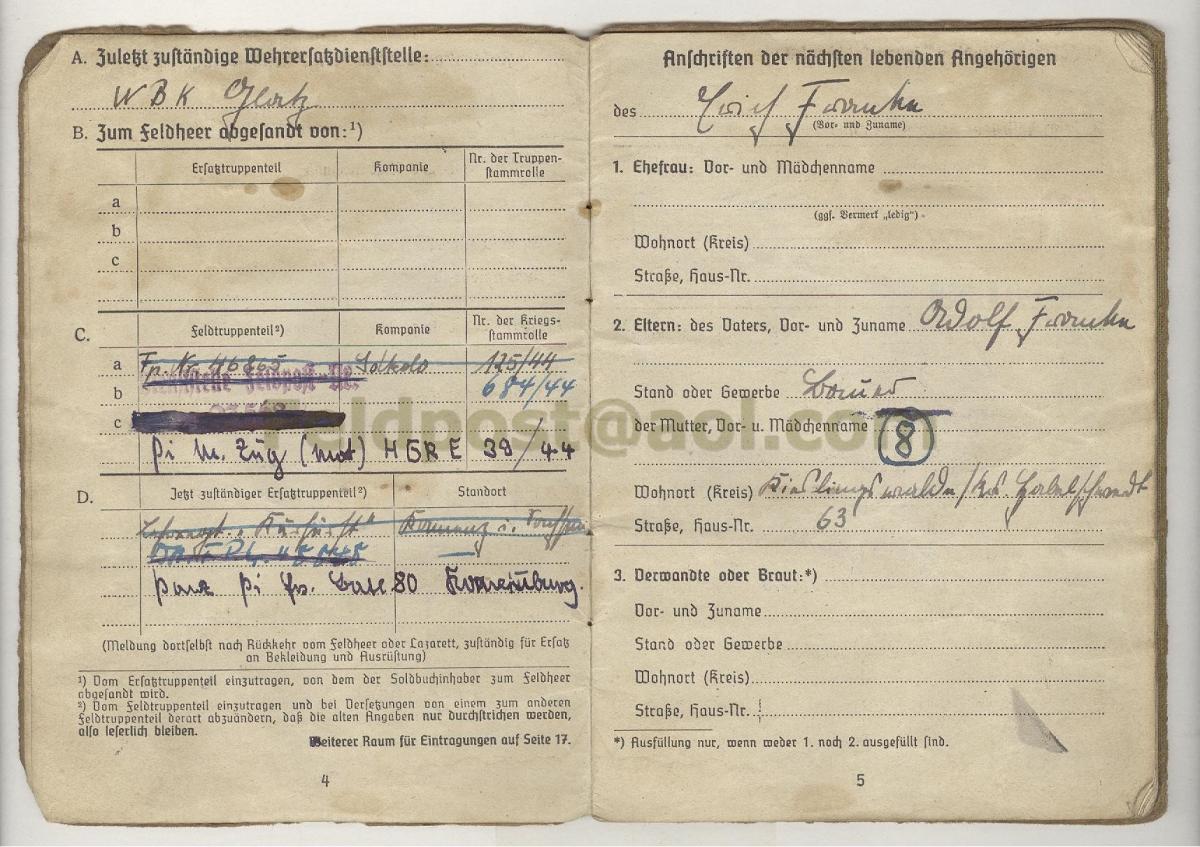 A. Zuletzt zuständige Wehrersatzdienststelle:
WBK Glatz
B. Zum Feldheer abgesandt von:¹)
Ersatztruppenteil Kompanie Nr. der Truppen-
stammrolle
a
b
c
C. Feldtruppenteil²) Kompanie Nr. der Kriegs-
stammrolle
a Fp. Nr. 46865 125/44
b 684/44
c
Pi M. Zug (mot) 39/44
D. Jetzt zuständiger Ersatztruppenteil²) Standort
Kamenz i.
Panz Pi Ers. Batl. 80
(Meldung dortselbst nach Rückkehr vom Feldheer oder Lazarett, zuständig für Ersatz
an Bekleidung und Ausrüstung)
¹) Vom Ersatztruppenteil einzutragen, von dem der Soldbuchinhaber zum Feldheer
abgesandt wird.
²) Vom Feldtruppenteil einzutragen und bei Versetzungen von einem zum anderen
Feldtruppenteil derart abzuändern, daß die alten Angaben nur durchstrichen werden,
also leserlich bleiben.
Weiterer Raum für Eintragungen auf Seite 17.
4
Anschriften der nächsten lebenden Angehörigen
des Erich Franke
(Vor- und Zuname)
1. Ehefrau: Vor- und Mädchenname
(ggf. Vermerk „ledig“)
Wohnort (Kreis)
Straße, Haus-Nr.
2. Eltern: des Vaters, Vor- und Zuname Adolf Franke
Stand oder Gewerbe Bauer
der Mutter, Vor- u. Mädchenname
8
Wohnort (Kreis) Kieslingswalde/Krs. Habelschwerdt
Straße, Haus-Nr. 63
3. Verwandte oder Braut:*)
Vor- und Zuname
Stand oder Gewerbe
Wohnort (Kreis)
Straße, Haus-Nr.
*) Ausfüllung nur, wenn weder 1. noch 2. ausgefüllt sind.
5
Feldpost@aol.com